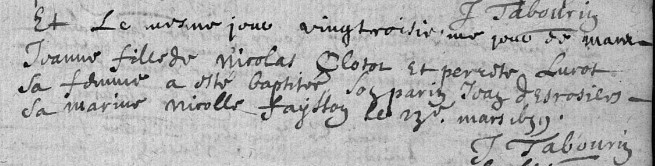 J Tabourin
Et Le mesme jour vingtroisieme jour de mars
Jeanne fille de Nicolas Clotot Et perrete Lurot
Sa femme a esté baptitée Son parin Jean desrosiers
Sa marine Nicolle Faytton le 23e. mars
J Tabourin